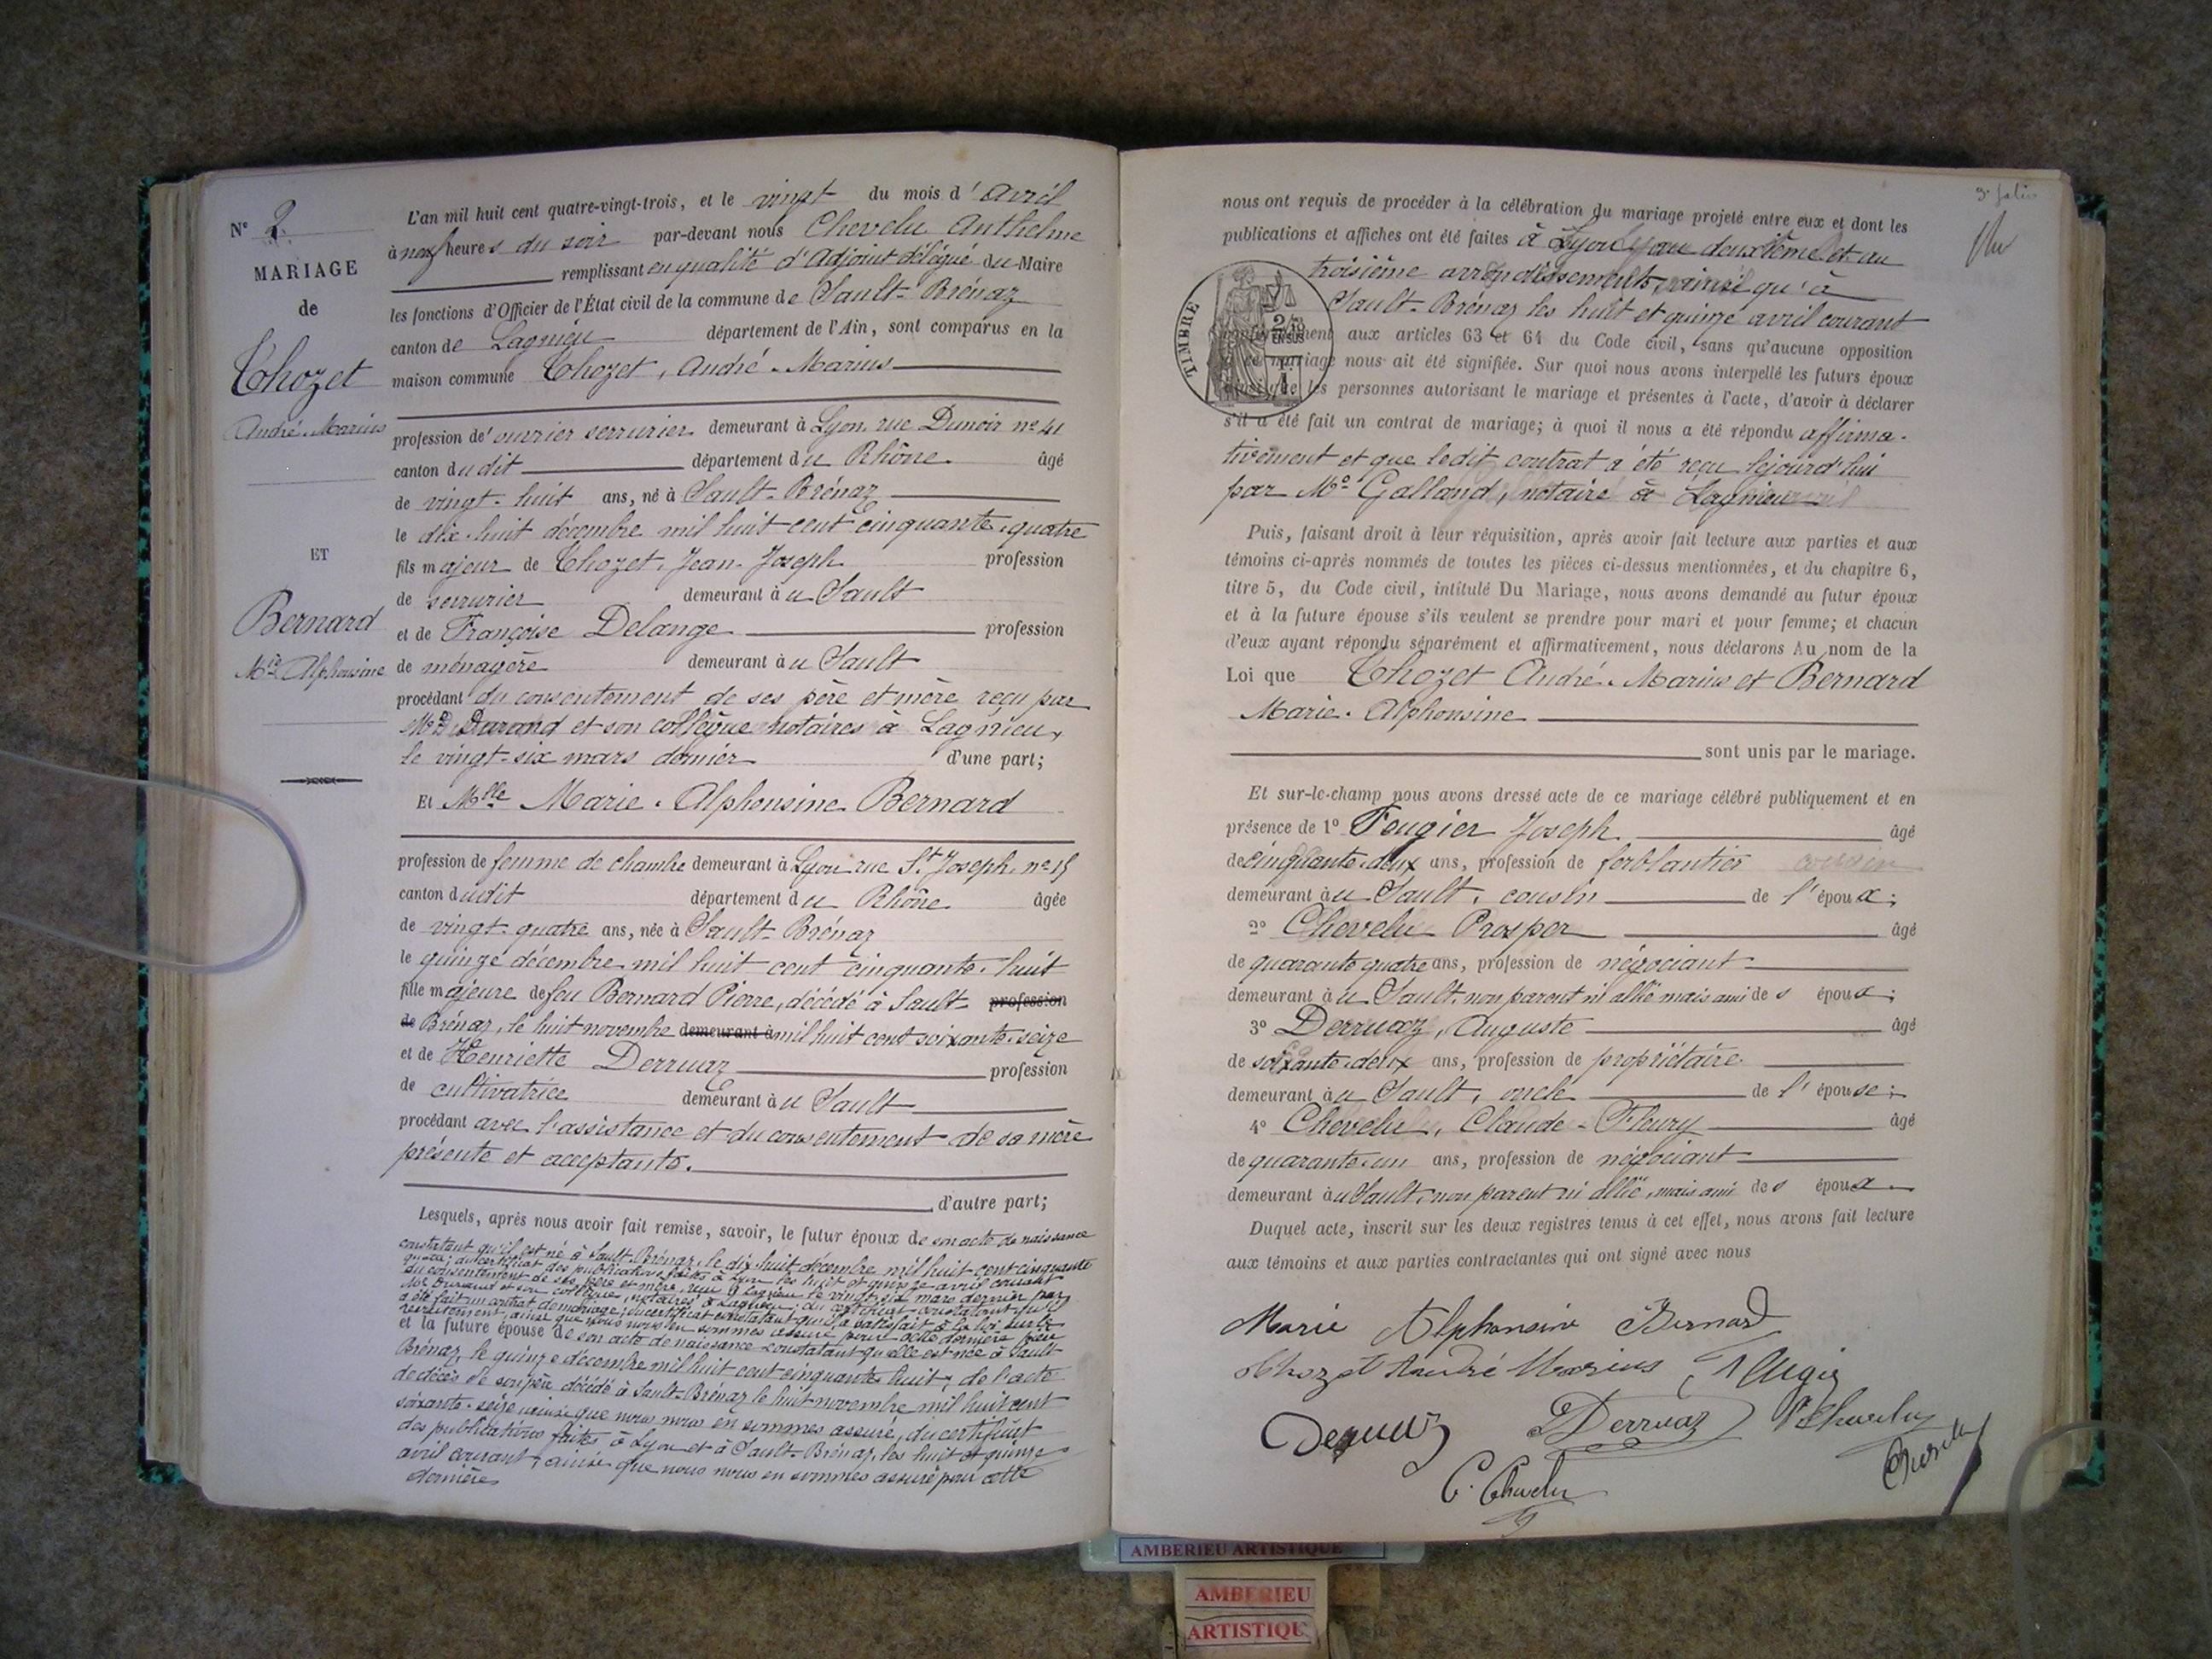 N° 2
MARIAGE
de
Thozet
André-Marius
ET
Bernard
Mie Alphonsine
L'an mil huit cent quatre-vingt-trois, et le vingt du mois d'avril
à neuf heures du soir par-devant nous Chevelu Anthelme
remplissant en qualité d'Adjoint délégué du Maire
les fonctions d'Officier de l'État civil de la commune de Sault-Brénaz
canton de Lagnieu département de l'Ain, sont comparus en la
maison commune Thozet, André-Marius
profession d'ouvrier serrurier demeurant à Lyon, rue Dunoir n° 41
canton dudit département du Rhône âgé
de vingt-huit ans, né à Sault-Brénaz
le dix-huit décembre mil huit cent cinquante-quatre
fils majeur de Thozet, Jean-Joseph profession
de serrurier demeurant à u Sault
et de Françoise Delange profession
de ménagère demeurant à u Sault
procédant du consentement de ses père et mère reçu par
Me Durand et son collègue notaires à Lagnieu,
le vingt-six mars dernier d'une part;
Et Mlle Marie-Alphonsine Bernard
profession de femme de chambre demeurant à Lyon rue St Joseph, n° 15
canton dudit département du Rhône âgée
de vingt-quatre ans, née à Sault-Brénaz
le quinze décembre mil huit cent cinquante-huit
fille majeure de feu Bernard Pierre, décédé à Sault profession
de Brénaz, le huit novembre demeurant à mil huit cent soixante-seize
et de Henriette Derruaz profession
de cultivatrice demeurant à u Sault
procédant avec l'assistance et du consentement de sa mère
présente et acceptante.
d'autre part;
Lesquels, après nous avoir fait remise, savoir, le futur époux de son acte de naissance
constatant qu'il est né à Sault-Brénaz, le dix-huit décembre mil huit cent cinquante
quatre; du certificat des publications faites à Lyon les huit et quinze avril courant
du consentement de ses père et mère, reçu à Lagnieu le vingt-six mars dernier par
Me Durand et son collègue, notaires à Lagnieu; du certificat constatant qu'il
a été fait un contrat de mariage; du certificat constatant qu'il a satisfait à la loi sur le
recrutement, ainsi que nous nous en sommes assuré pour cette dernière pièce
et la future épouse de son acte de naissance constatant qu'elle est née à Sault
Brénaz, le quinze décembre mil huit cent cinquante-huit; de l'acte
de décès de son père décédé à Sault-Brénaz le huit novembre mil huit cent
soixante-seize ainsi que nous nous en sommes assuré, du certificat
des publications faites à Lyon et à Sault-Brénaz, les huit et quinze
avril courant; ainsi que nous nous en sommes assuré pour cette
dernière
3e folio
nous ont requis de procéder à la célébration du mariage projeté entre eux et dont les
publications et affiches ont été faites à Lyon au deuxième et au
troisième arrondissements, ainsi qu'à
Sault-Brénaz les huit et quinze avril courant
TIMBRE
conformément aux articles 63 et 64 du Code civil, sans qu'aucune opposition
à ce mariage nous ait été signifiée. Sur quoi nous avons interpellé les futurs époux
ainsi que les personnes autorisant le mariage et présentes à l'acte, d'avoir à déclarer
s'il a été fait un contrat de mariage; à quoi il nous a été répondu affirma-
tivement et que ledit contrat a été reçu ce jourd'hui
par Me Galland, notaire à Lagnieu
Puis, faisant droit à leur réquisition, après avoir fait lecture aux parties et aux
témoins ci-après nommés de toutes les pièces ci-dessus mentionnées, et du chapitre 6,
titre 5, du Code civil, intitulé Du Mariage, nous avons demandé au futur époux
et à la future épouse s'ils veulent se prendre pour mari et pour femme; et chacun
d'eux ayant répondu séparément et affirmativement, nous déclarons Au nom de la
Loi que Thozet André-Marius et Bernard
Marie-Alphonsine
sont unis par le mariage.
Et sur-le-champ nous avons dressé acte de ce mariage célébré publiquement et en
présence de 1° Feugier Joseph âgé
de cinquante-deux ans, profession de ferblantier
demeurant à u Sault, cousin de l'époux;
2° Chevelu Prosper âgé
de quarante quatre ans, profession de négociant
demeurant à u Sault, non parent ni allié mais ami des époux;
3° Derruaz, Auguste âgé
de soixante-deux ans, profession de propriétaire
demeurant à u Sault, oncle de l'épouse;
4° Chevelu, Claude-Fleury âgé
de quarante-un ans, profession de négociant
demeurant à u Sault, non parent ni allié, mais ami des époux.
Duquel acte, inscrit sur les deux registres tenus à cet effet, nous avons fait lecture
aux témoins et aux parties contractantes qui ont signé avec nous
Marie Alphonsine Bernard
Thozet André Marius Feugier
Derruaz Derruaz P Chevelu
C. Chevelu Chevelu
AMBERIEU ARTISTIQUE
AMBERIEU
ARTISTIQUE